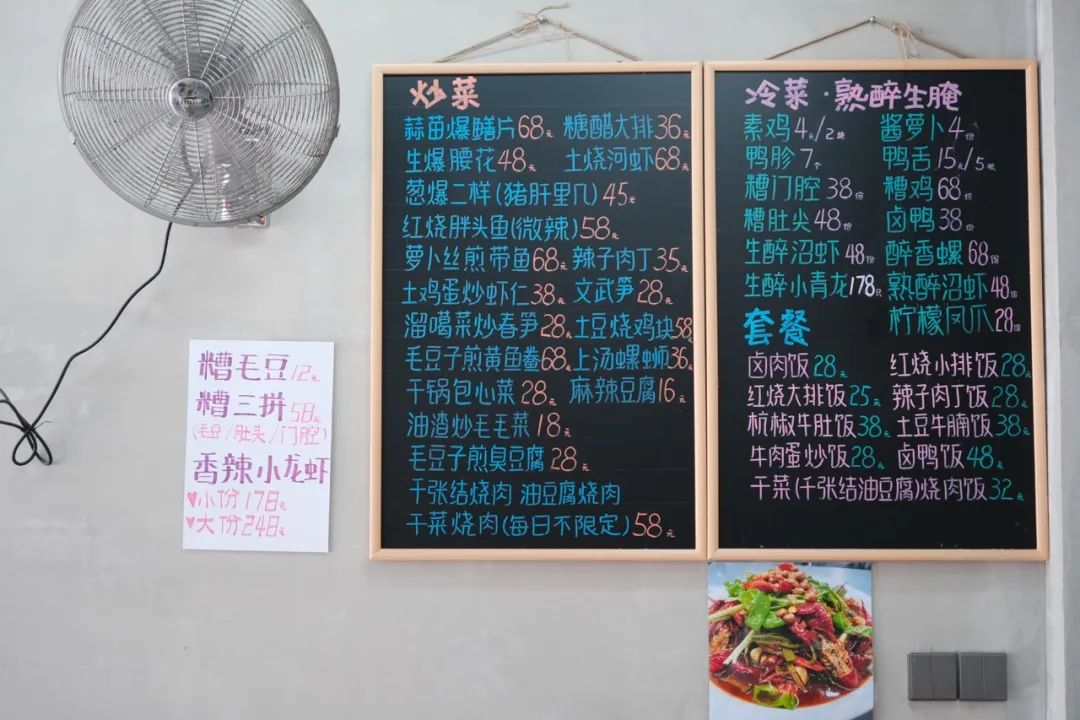 炒菜
蒜苗爆鳝片68元 糖醋大排36元
生爆腰花48元 土烧河虾68元
葱爆二样(猪肝里几)45元
红烧胖头鱼(微辣)58元
萝卜丝煎带鱼68元 辣子肉丁35元
土鸡蛋炒虾仁38元 文武笋28元
溜噶菜炒春笋28元 土豆烧鸡块58元
毛豆子煎黄鱼鲞68元 上汤螺蛳36元
干锅包心菜28元 麻辣豆腐16元
油渣炒毛毛菜18元
毛豆子煎臭豆腐28元
千张结烧肉 油豆腐烧肉
干菜烧肉(每日不限定)58元
冷菜·熟醉生腌
素鸡4元/2块 酱萝卜4份
鸭胗7个 鸭舌15元/5根
糟门腔38份 糟鸡68份
糟肚尖48份 卤鸭38份
生醉沼虾48份 醉香螺68份
生醉小青龙178只 熟醉沼虾48份
柠檬凤爪28份
套餐
卤肉饭28元 红烧小排饭28元
红烧大排饭25元 辣子肉丁饭28元
杭椒牛肚饭38元 土豆牛腩饭38元
牛肉蛋炒饭28元 卤鸭饭48元
干菜(千张结油豆腐)烧肉饭32元
糟毛豆12元
糟三拼58元
(毛豆/肚头/门腔)
香辣小龙虾
♥小份178元
♥大份248元